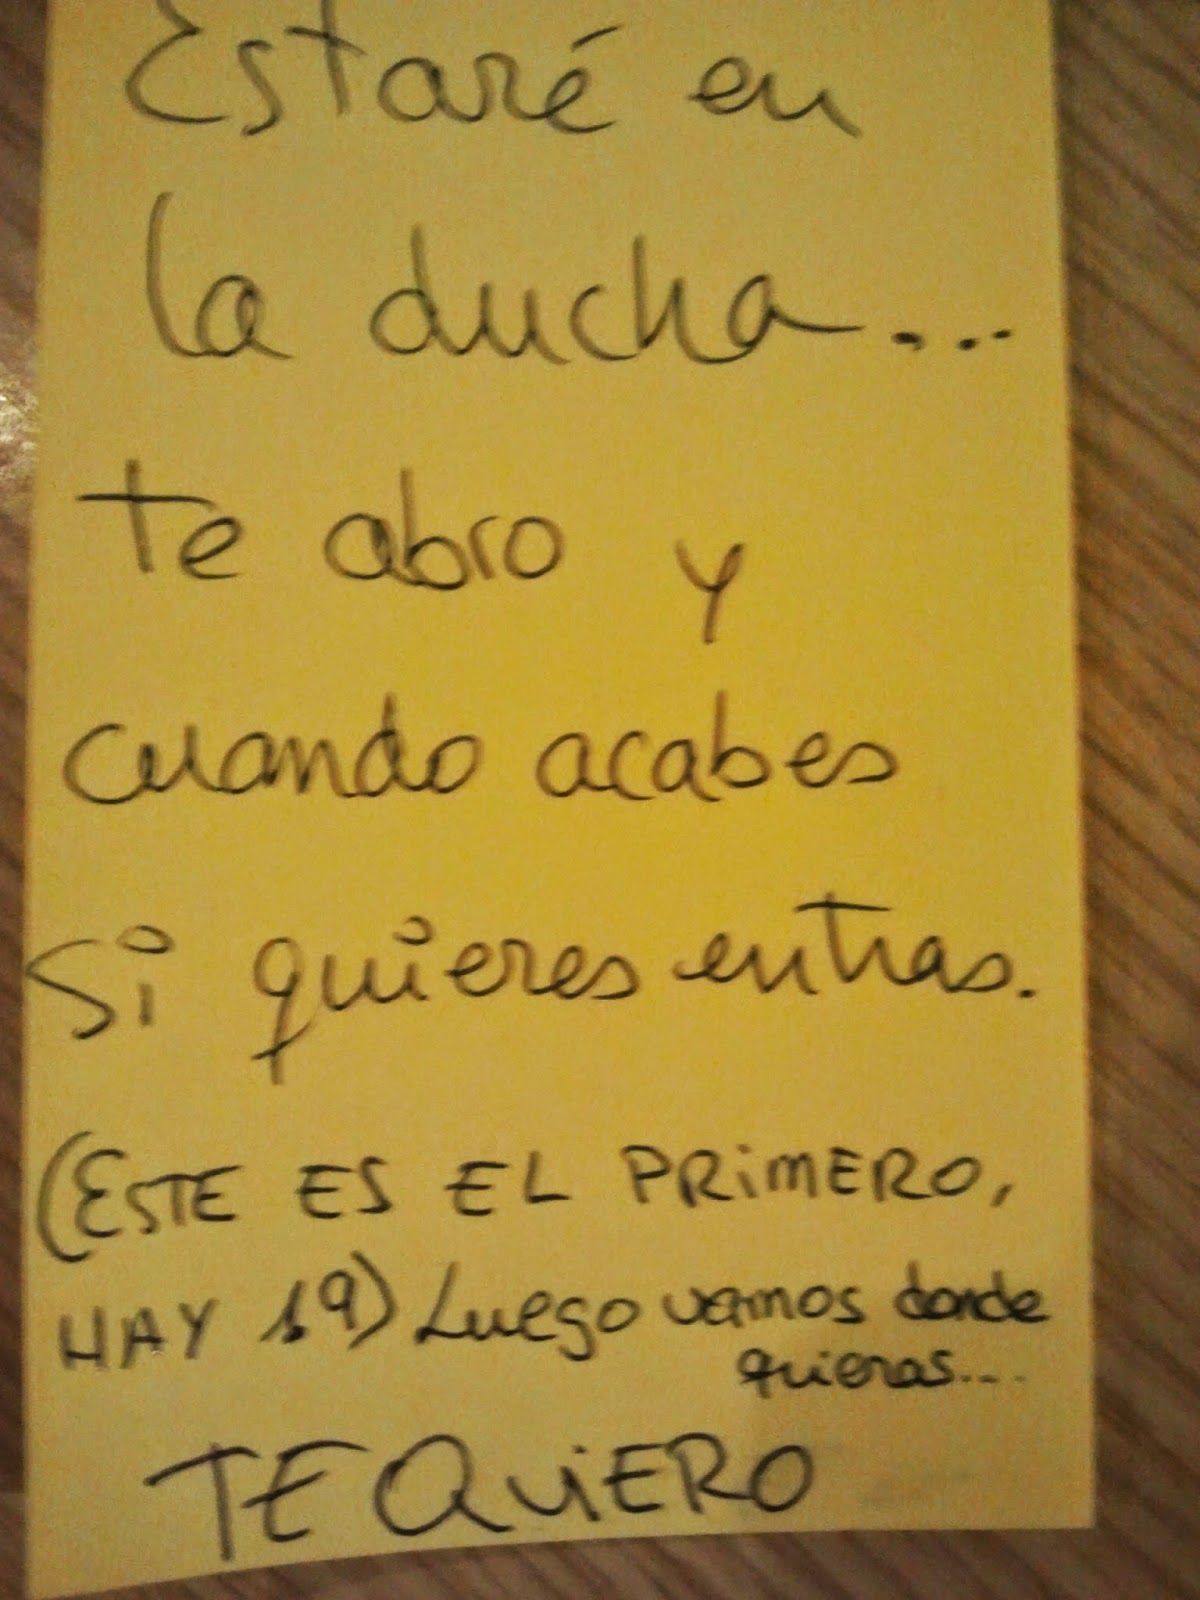 Estaré en
la ducha...
te abro y
cuando acabes
Si quieres entras.
(ESTE ES EL PRIMERO,
HAY 19) Luego vamos donde
quieras....
TE QUIERO